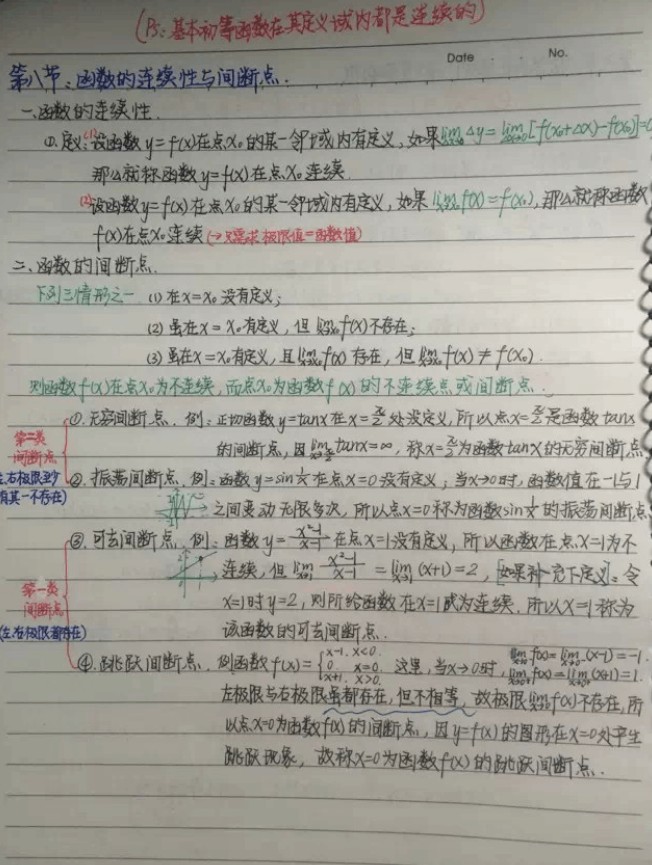 (Ps:基本初等函数在其定义域内都是连续的)
Date No.
第八节:函数的连续性与间断点.
一.函数的连续性.
①.定义:(1)设函数y=f(x)在点x₀的某一邻域内有定义,如果lim Δy=lim[f(x₀+Δx)-f(x₀)]=0
那么就称函数y=f(x)在点x₀连续.
(2)设函数y=f(x)在点x₀的某一邻域内有定义,如果lim f(x)=f(x₀),那么就称函数
f(x)在点x₀连续(→只需求极限值=函数值)
二、函数的间断点.
下列三情形之一 (1)在x=x₀没有定义;
(2)虽在x=x₀有定义,但lim f(x)不存在;
(3)虽在x=x₀有定义,且lim f(x)存在,但lim f(x)≠f(x₀).
则函数f(x)在点x₀为不连续,而点x₀为函数f(x)的不连续点或间断点.
①.无穷间断点.例:正切函数y=tanx在x=π/2处没定义,所以点x=π/2是函数tanx
第二类
间断点
的间断点,因lim tanx=∞,称x=π/2为函数tanx的无穷间断点
(左,右极限至少
有其一不存在)
②.振荡间断点.例:函数y=sin1/x在点x=0没有定义;当x→0时,函数值在-1与1
之间变动无限多次,所以点x=0称为函数sin1/x的振荡间断点
③.可去间断点.例:函数y=x²-1/x-1在点x=1没有定义,所以函数在点x=1为不
连续,但lim x²-1/x-1=lim(x+1)=2,[如果补充下定义]:令
第一类
间断点
x=1时y=2,则所给函数在x=1成为连续.所以x=1称为
(左,右极限都存在)
该函数的可去间断点.
④.跳跃间断点.例函数f(x)={x-1, x<0. 0, x=0. x+1, x>0. 这里,当x→0时,lim f(x)=lim(x-1)=-1. lim f(x)=lim(x+1)=1.
左极限与右极限虽都存在,但不相等,故极限lim f(x)不存在,所
以点x=0为函数f(x)的间断点,因y=f(x)的图形在x=0处产生
跳跃现象,故称x=0为函数f(x)的跳跃间断点.